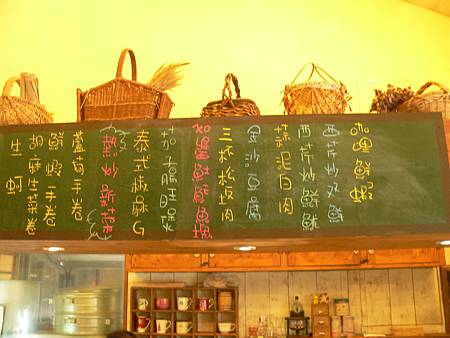 咖哩鮮蝦
西芹炒双鮮
西芹炒鮮魷
蒜泥白肉
金沙豆腐
三杯松板肉
魚塊
茄旺煲
泰式椒麻G
熱炒新菜
蘆筍手卷
鮮蝦手卷
胡麻生菜卷
生蚵